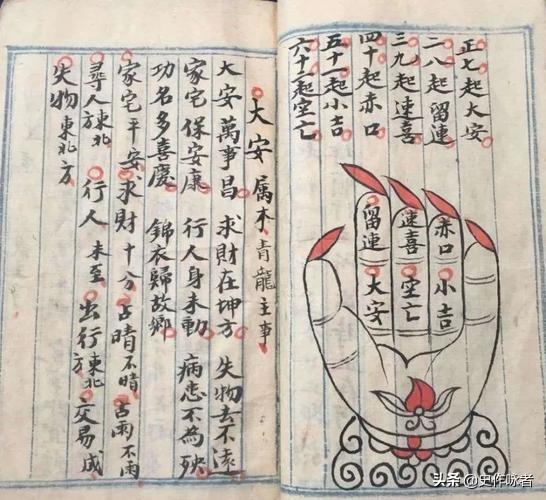 正七起大安
二八起留連
三九起速喜
四十起赤口
五十一起小吉
六十二起空亡
留連
速喜
赤口
大安
空亡
小吉
大安 属木青龍主事
大安萬事昌 求財在坤方 失物去不遠
家宅保安康 行人身未動 病患不為殃
功名多喜慶 錦衣歸故鄉
家宅平安求財十分占晴不晴占雨不雨
尋人東北方 行人未至 出行東北方 交易成
失物東北方
头条 @史作咏者